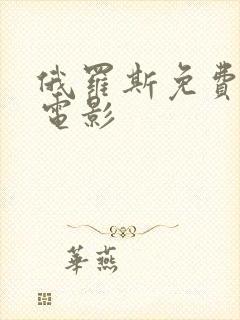 俄羅斯免費
電影
華燕